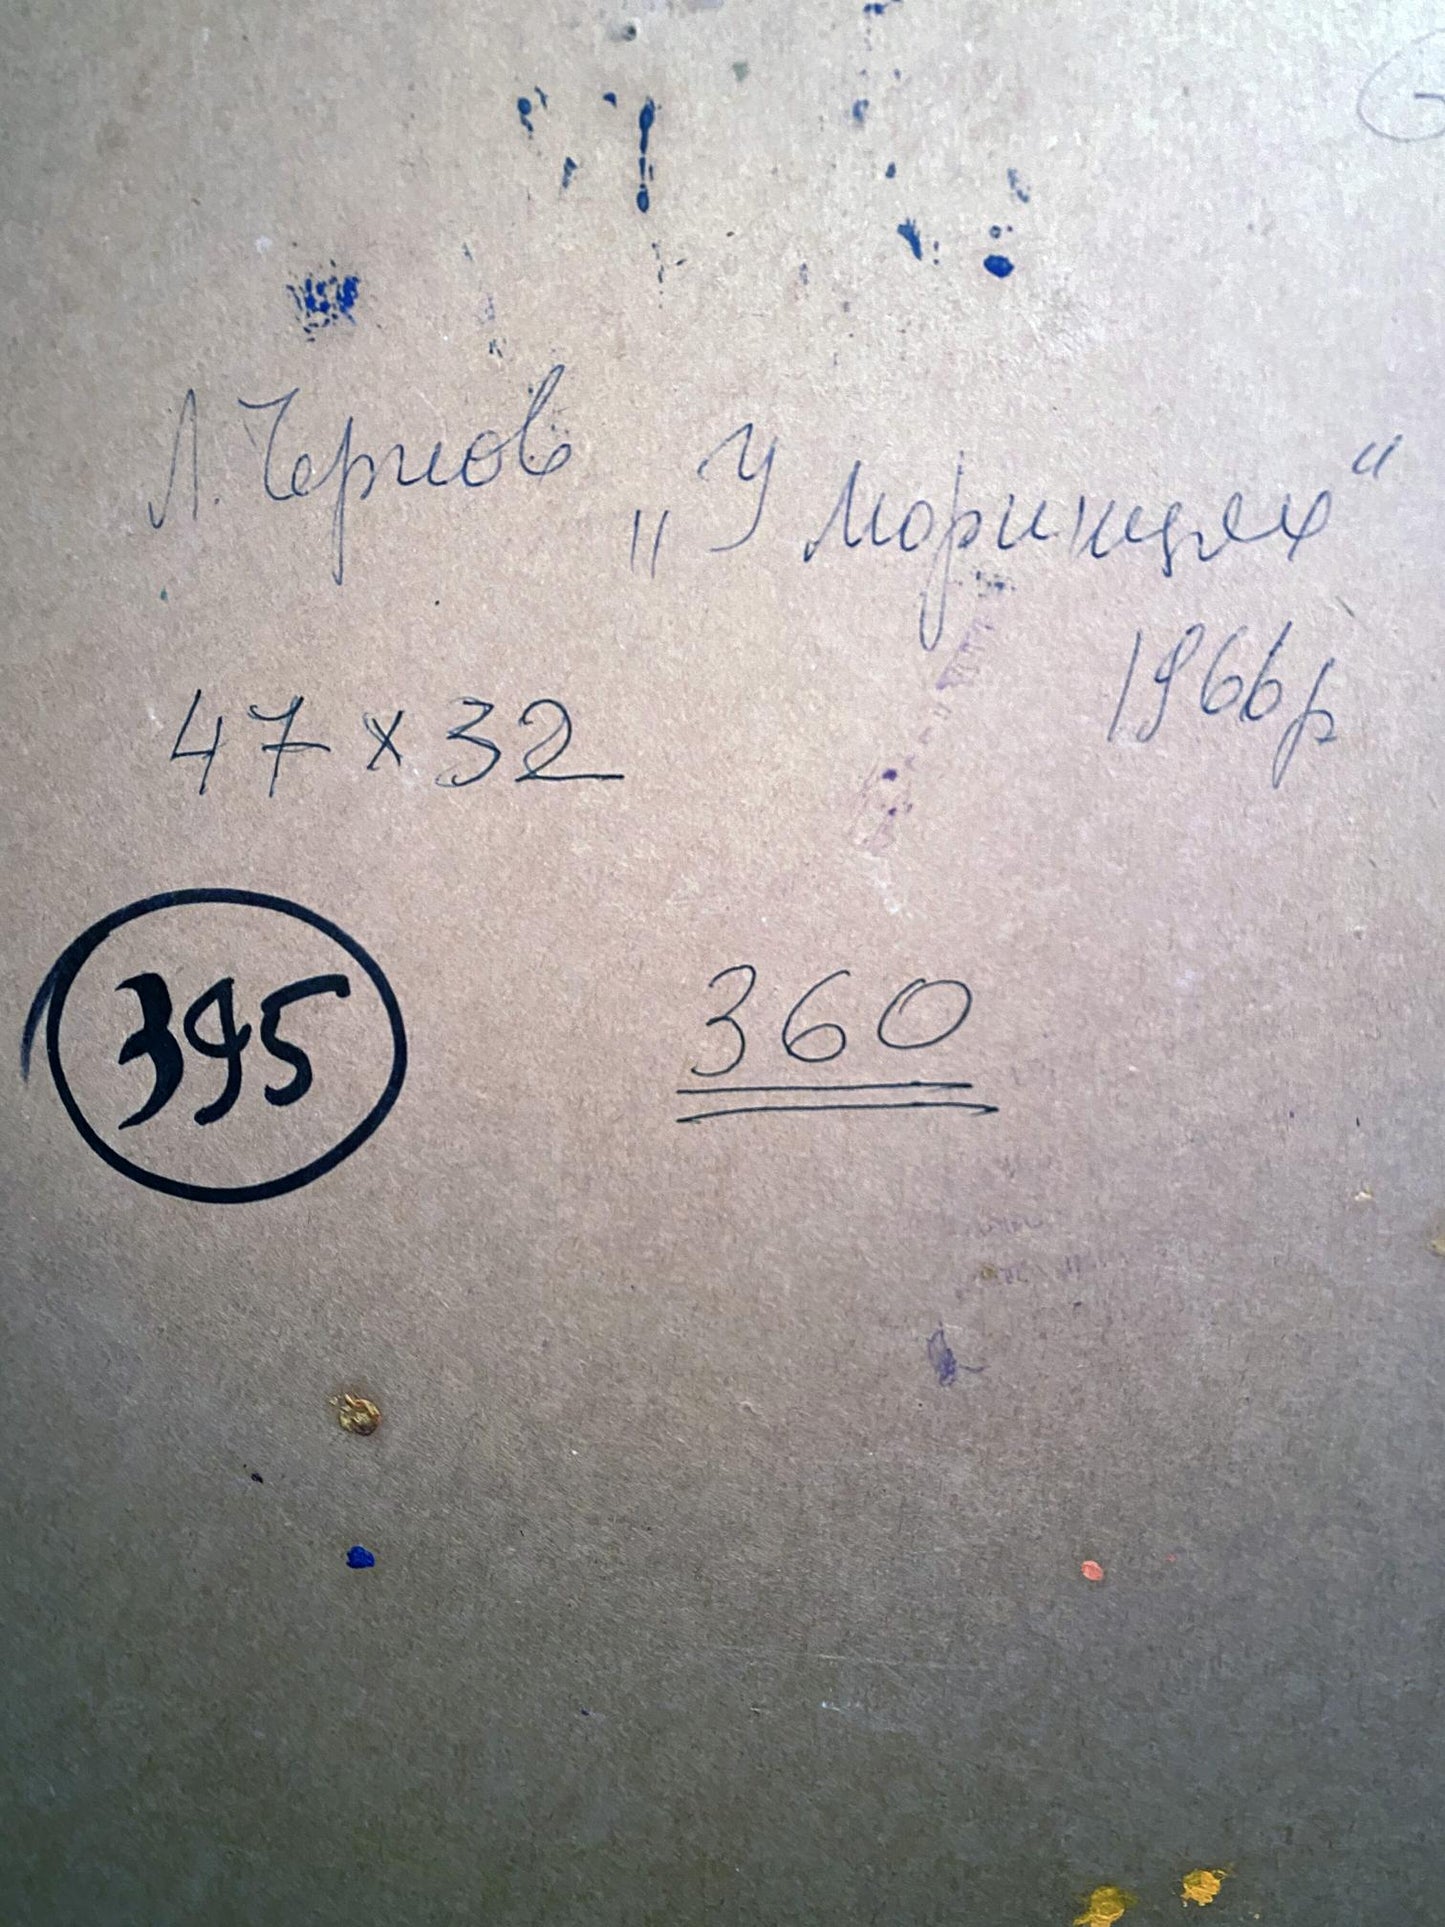 Л. Чернов „У Моринцях“
1966р
47 x 32
395
360